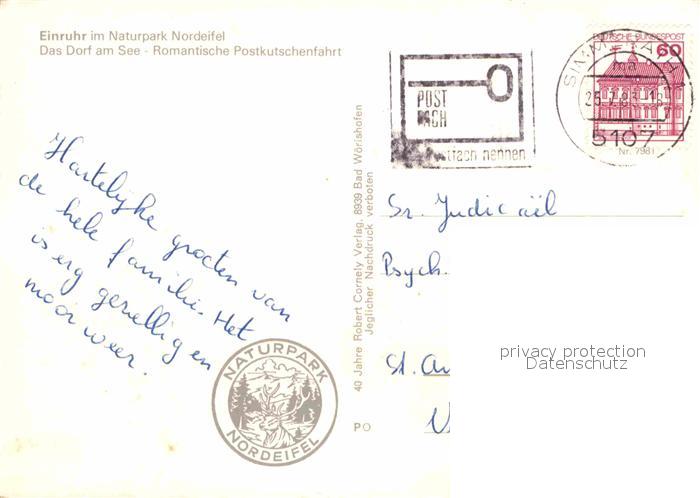 Einruhr im Naturpark Nordeifel
Das Dorf am See - Romantische Postkutschenfahrt
Hartelijke groeten van
de hele familie. Het
is erg gezellig en
mooi weer.
NATURPARK
NORDEIFEL
40 Jahre Robert Cornely Verlag, 8939 Bad Wörishofen
Jeglicher Nachdruck verboten
PO
POST
FACH
nennen
DEUTSCHE BUNDESPOST
60
SIMMERATH
ba
25.7.83-18
5107
Nr. 7981
Sr. Judicaël
Psych.
St. An
privacy protection
Datenschutz